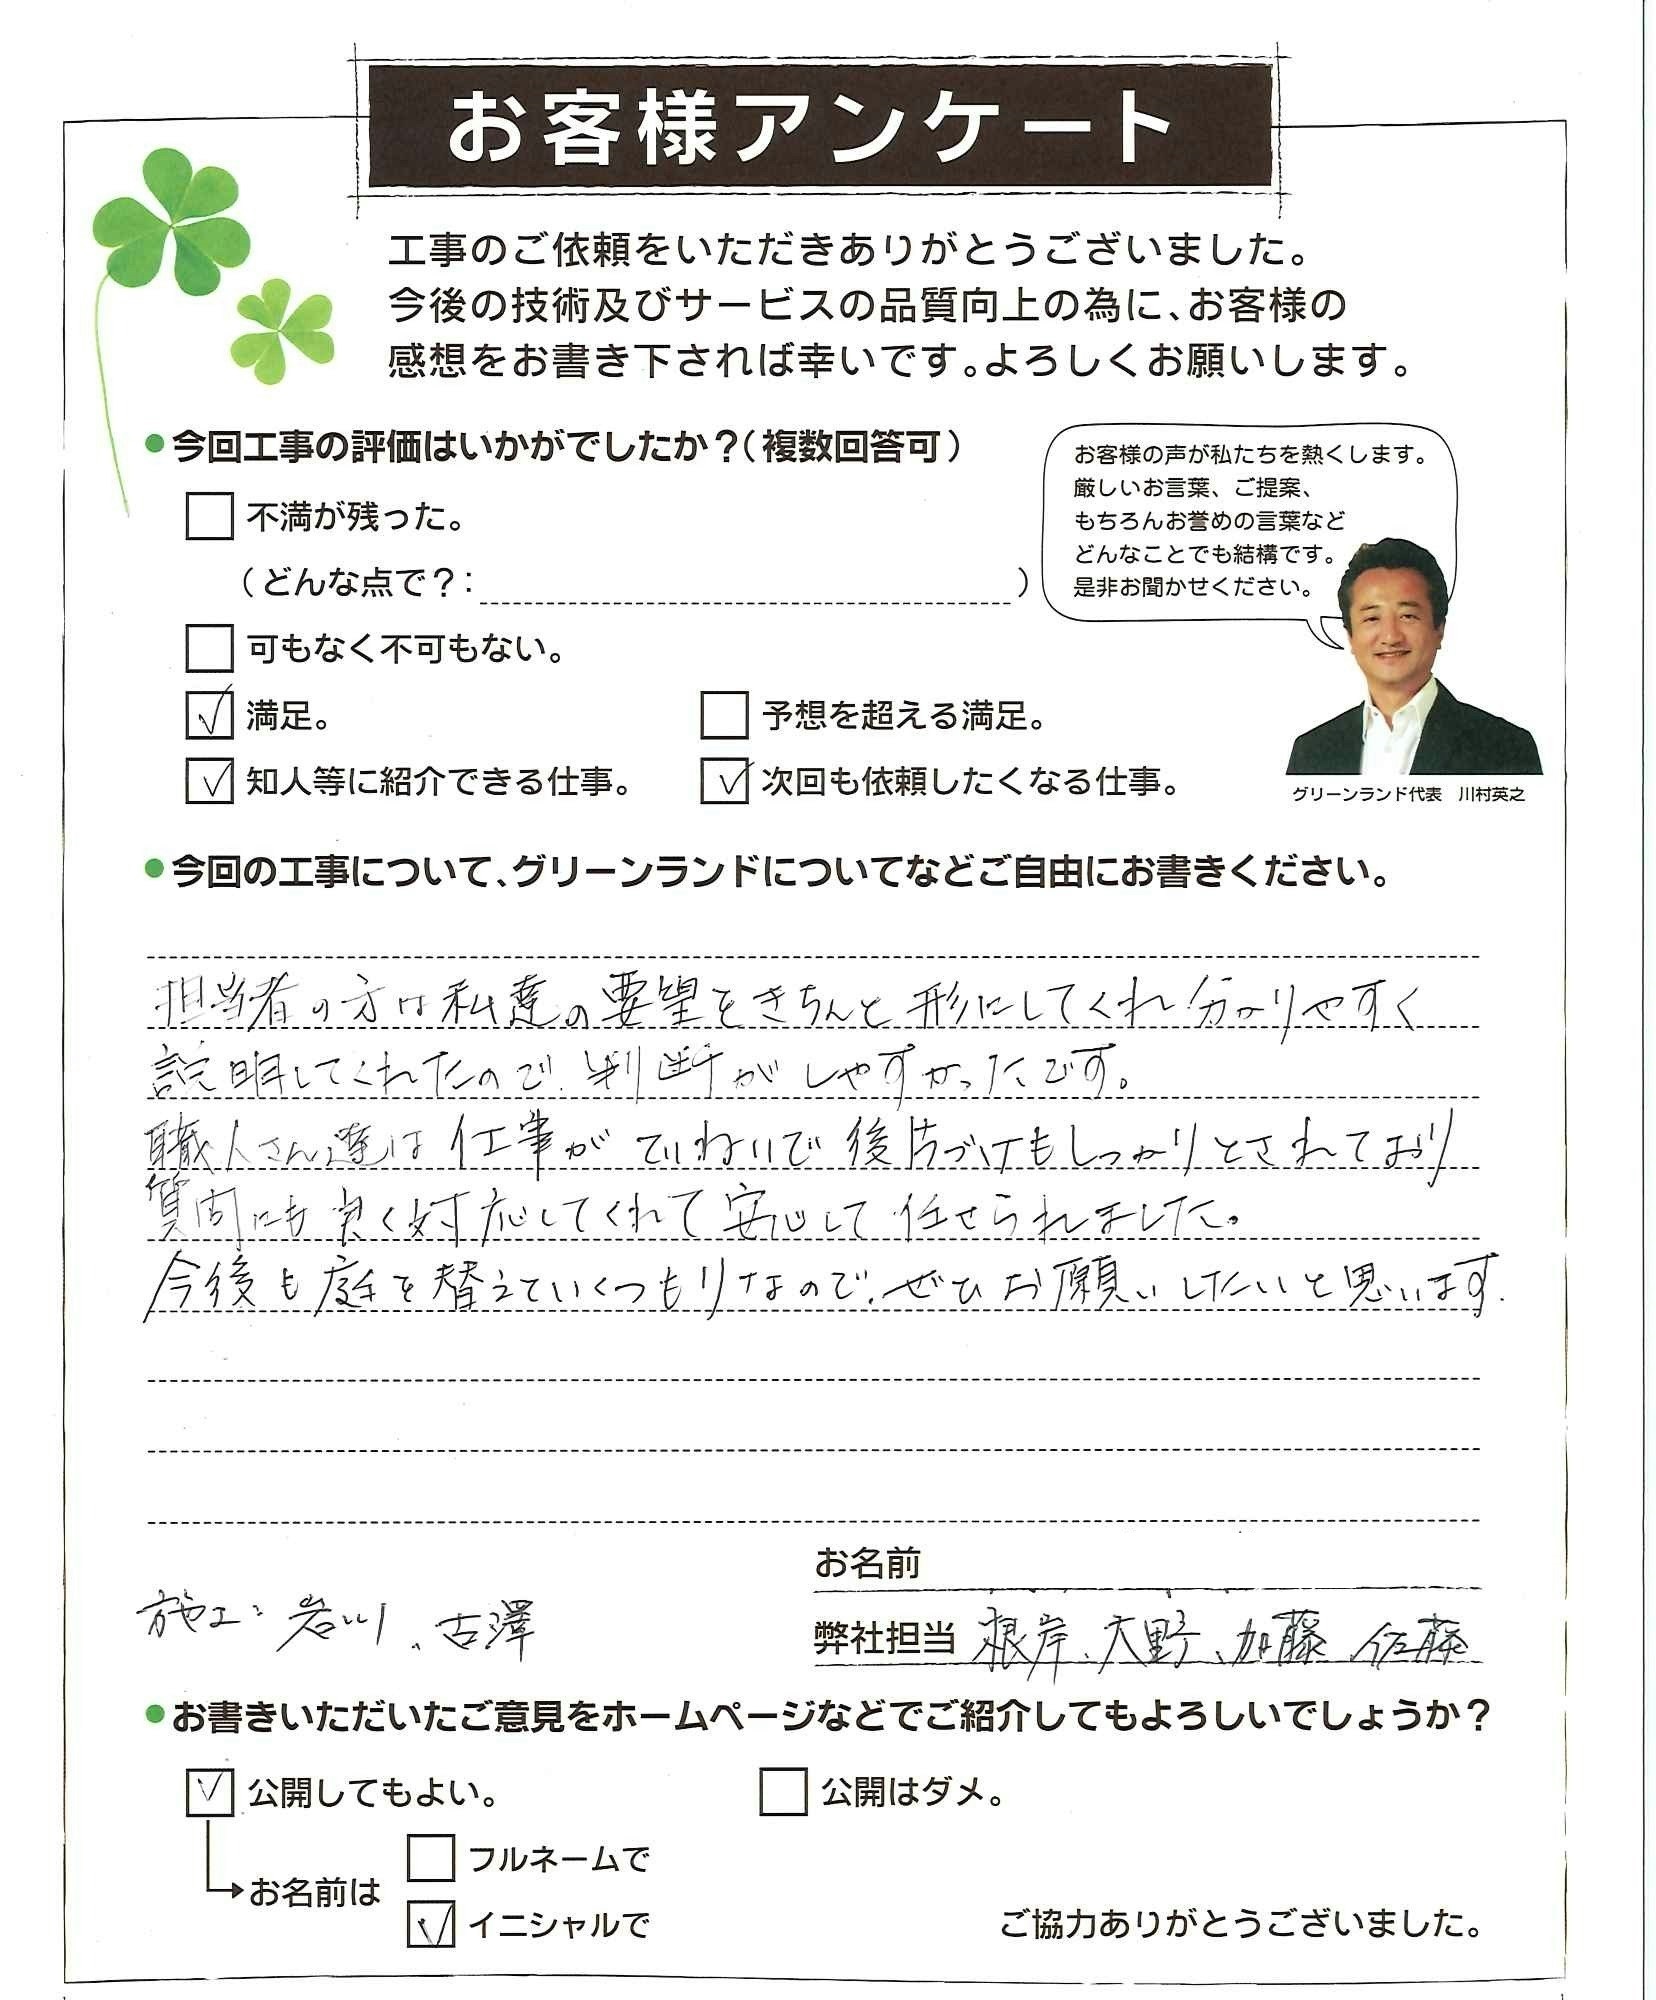 お客様アンケート
工事のご依頼をいただきありがとうございました。
今後の技術及びサービスの品質向上の為に、お客様の
感想をお書き下されば幸いです。よろしくお願いします。
●今回工事の評価はいかがでしたか？（複数回答可）
不満が残った。
（どんな点で？：　　　　）
可もなく不可もない。
満足。
予想を超える満足。
知人等に紹介できる仕事。
次回も依頼したくなる仕事。
お客様の声が私たちを熱くします。
厳しいお言葉、ご提案、
もちろんお誉めの言葉など
どんなことでも結構です。
是非お聞かせください。
グリーンランド代表　川村英之
●今回の工事について、グリーンランドについてなどご自由にお書きください。
担当者の方は私達の要望をきちんと形にしてくれ分かりやすく
説明してくれたので、判断がしやすかったです。
職人さん達は仕事がていねいで後片づけもしっかりとされており
質問にも良く対応してくれて安心して任せられました。
今後も庭を替えていくつもりなので、ぜひお願いしたいと思います.
お名前
施工：岩川、古澤
弊社担当 根岸、大野、加藤 佐藤
●お書きいただいたご意見をホームページなどでご紹介してもよろしいでしょうか？
公開してもよい。
公開はダメ。
お名前は
フルネームで
イニシャルで
ご協力ありがとうございました。